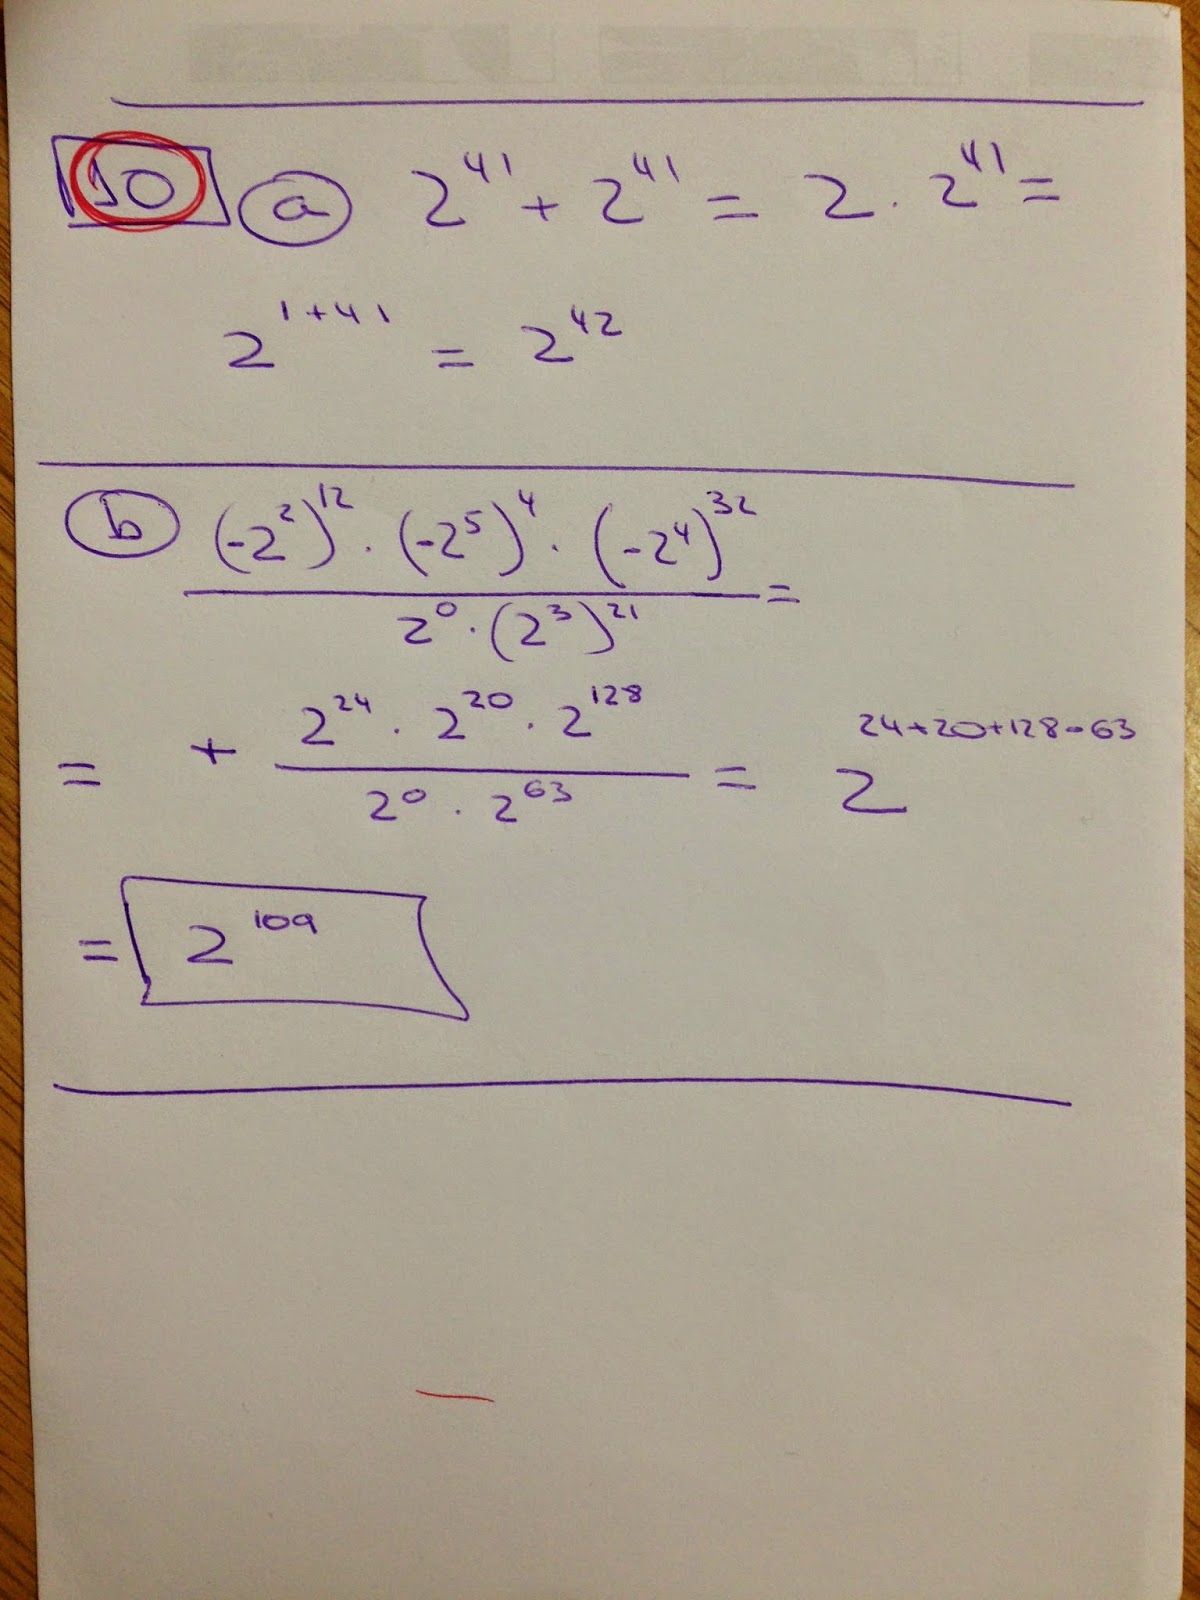 10 a 2^41 + 2^41 = 2 · 2^41 =
2^(1+41) = 2^42
b (-2^2)^12 · (-2^5)^4 · (-2^4)^32 / 2^0 · (2^3)^21 =
= + 2^24 · 2^20 · 2^128 / 2^0 · 2^63 = 2^(24+20+128-63)
= 2^109